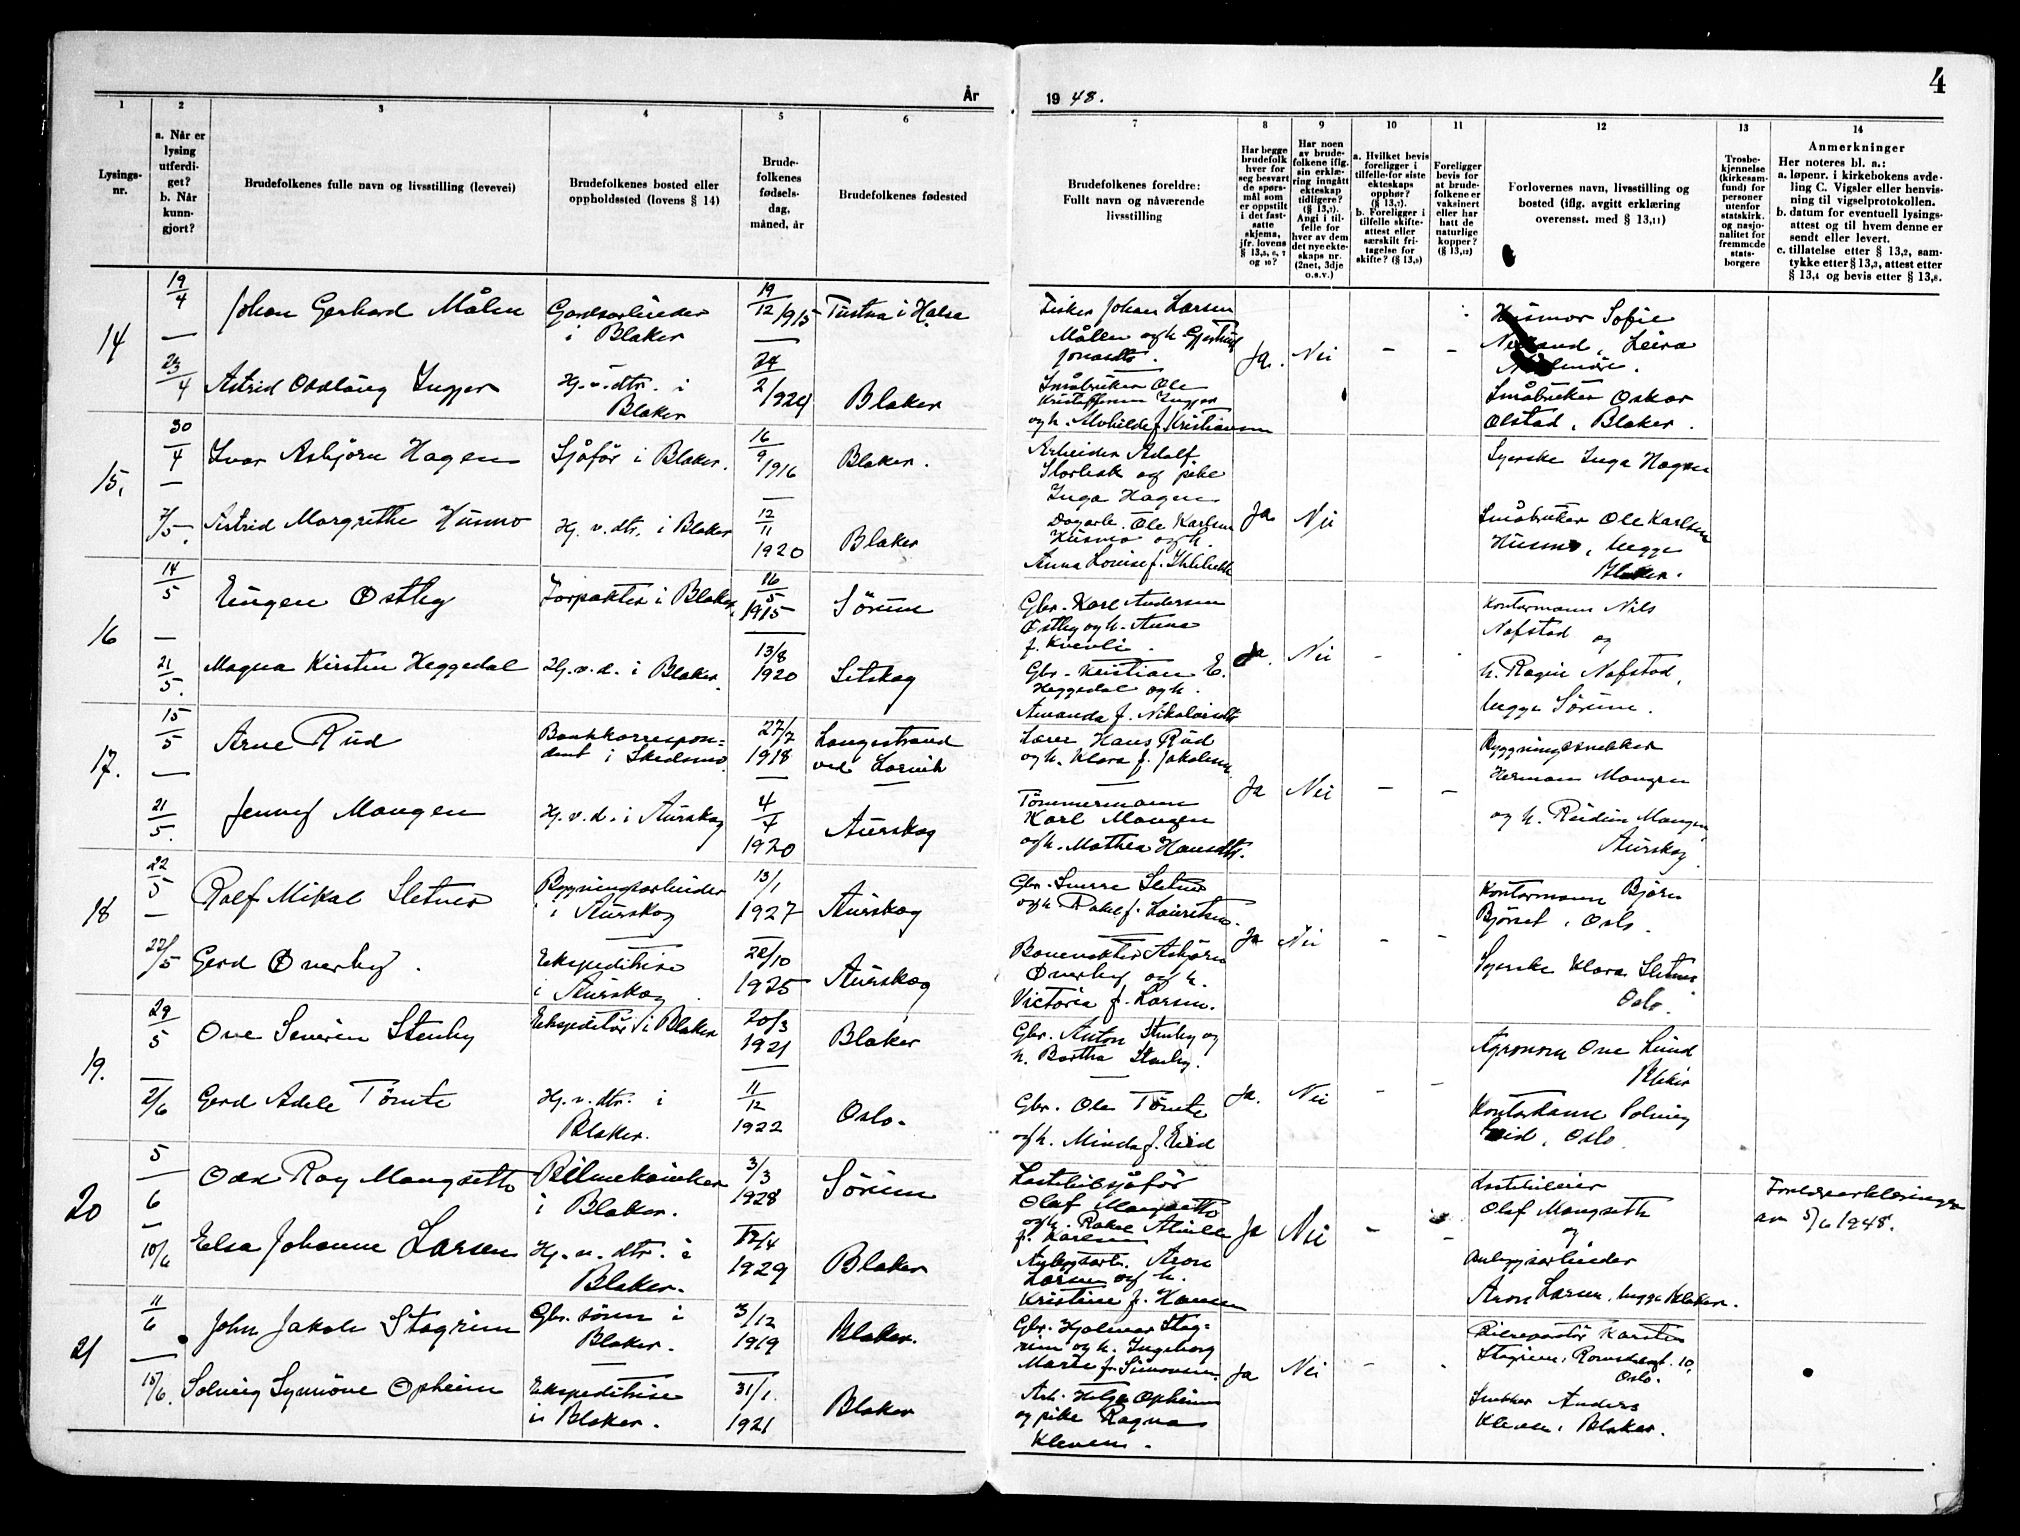 4
År
19 48.
1
2
3
4
5
6
7
8
9
10
11
12
13
14
Lysings-
nr.
a. Når er
lysing
utferdi-
get?
b. Når
kunn-
gjort?
Brudefolkenes fulle navn og livsstilling (levevei)
Brudefolkenes bosted eller
oppholdssted (lovens § 14)
Brude-
folkenes
fødsels-
dag,
måned, år
Brudefolkenes fødested
Brudefolkenes foreldre:
Fullt navn og nåværende
livsstilling
Har begge
brudefolk
hver for
seg besvart
de spørs-
mål som
er oppstilt
i det fast-
satte
skjema,
jfr. lovens
§ 13,5, 6, 7
og 10?
Har noen
av brude-
folkene iflg.
sin erklæ-
ring inngått
ekteskap
tidligere?
(§ 13,7).
Angi i til-
felle for
hver av dem
det nye ekte-
skaps nr.
(2net, 3dje
o.s.v.)
a. Hvilket bevis
foreligger i
tilfelle for siste
ekteskaps
opphør?
(§ 13,7).
b. Foreligger i
tilfelle skifte-
attest eller
særskilt fri-
tagelse for
skifte? (§ 13,9)
Foreligger
bevis for
at brude-
folkene er
vaksinert
eller har
hatt de
naturlige
kopper?
(§ 13,12)
Forlovernes navn, livsstilling og
bosted (iflg. avgitt erklæring
overensst. med § 13,11)
Trosbe-
kjennelse
(kirkesam-
fund) for
personer
utenfor
statskirk.
og nasjo-
nalitet for
fremmede
stats-
borgere
Anmerkninger
Her noteres bl. a.:
a. løpenr. i kirkebokens avde-
ling C. Vigsler eller henvis-
ning til vigselprotokollen.
b. datum for eventuell lysings-
attest og til hvem denne er
sendt eller levert.
c. tillatelse etter § 13,2, sam-
tykke etter § 13,3, attest etter
§ 13,4 og bevis etter § 13,8.
14
19/4
—
23/4
Johan Gerhard Målen
Gardsarbeider
i Blaker
19/12 1915
Tustna i Halsa
Fisker Johan Larsen
Målen og h. Gjertrud
Jonasdtr.
Husmor Sofie
Leira
Astrid Oddlaug Ingjer
Hj. v. dtr. i
Blaker
24/2 1924
Blaker
Småbruker Ole
Kristoffersen Ingjer
og h. Alvhilde f. Kristiansen
Ja.
Nei
-
-
Småbruker Oskar
Olstad, Blaker.
15.
30/4
—
7/5.
Ivar Asbjørn Hagen
Sjåfør i Blaker.
16/9 1916
Blaker.
Arbeider Adolf
Storbak og pike
Inga Hagen
Syerske Inga Hagen
Astrid Margrethe Husmo
Hj. v. dtr. i Blaker
12/11
1920
Blaker
Dagarb. Ole Karlsen
Husmo og h.
Anna Louise f.
Ja
Nei
Småbruker Ole Karlsen
Husmo, begge
Blaker.
16
14/5
—
21/5.
Eugen Østby
Forpakter i Blaker.
16/5
1915
Sørum
Gbr. Karl Andersen
Østby og h. Anna
f. Kvevli.
Kontormann Nils
Nafstad og
Magna Kirsten Heggedal
Hj. v. d. i Blaker.
13/8
1920
Setskog
Gbr. Kristian E.
Heggedal og h.
Amanda f. Nikolaisdtr
Ja.
Nei
-
h. Ragni Nafstad,
begge Sørum.
17.
15/5
—
21/5.
Arne Rud
Bankkorrespon=
dent i Skedsmo.
27/7
1918
Langestrand
ved Larvik
Lærer Hans Rud
og h. Klara f. Jakobsen
Bygningssnekker
Herman Mangen
Jenny Mangen
Hj. v. d. i Aurskog
4/4
1920
Aurskog
Tømmermann
Karl Mangen
og h. Mathea Hansdtr.
Ja
Nei
-
-
og h. Reidun Mangen
Aurskog.
18
22/5
—
22/5
Rolf Mikal Sletner
Bygningsarbeider
i Aurskog
13/1
1927
Aurskog
Gbr. Sverre Sletner
og h. Rakel f. Lauritsen.
Kontormann Bjørn
Bjørset, Oslo.
Gerd Øverby.
Ekspeditrise
i Aurskog.
22/10
1925
Aurskog
Banevokter Asbjørn
Øverby og h.
Victoria f. Larsen.
Ja
Nei
-
-
Syerske Klara Sletner
Oslo.
19.
29/5
—
2/6
Ove Severin Stenby
Ekspeditør i Blaker
20/3
1921
Blaker
Gbr. Anton Stenby og
h. Bertha Stenby.
Agronom Ove Lund
Blaker
Gerd Adele Tømte
Hj. v. dtr. i
Blaker.
11/12
1922
Oslo.
Gbr. Ole Tømte
og h. Minda f. Eid
Ja.
Nei
-
-
Kontordame Solveig
Eid, Oslo.
20
5/6
—
10/6
Odd Roy Mangseth
Bilmekaniker
i Blaker.
3/3
1928
Sørum
Lastebilsjåfør
Olaf Mangseth
og h. Rakel
f. Karlsen
Lastebileier
Olaf Mangseth
og
av 5/6 1948.
Elsa Johanne Larsen
Hj. v. dtr. i
Blaker.
12/4
1929
Blaker
Anleggsarb. Aron
Larsen og h.
Kristine f. Hansen
Ja
Nei
-
-
Anleggsarbeider
Aron Larsen, begge Blaker.
21
11/6
—
15/6.
John Jakob Stogrim
Gbr. sønn i
Blaker.
3/12
1919
Blaker.
Gbr. Hjalmar Stog=
rim og h. Ingeborg
Marie f. Simonsen.
Bilreparatør Karsten
Stogrim, Romsdalsgt. 10,
Oslo.
Solveig Synnøve Opheim
Ekspeditrise
i Blaker.
31/1.
1921
Blaker
Arb. Helge Opheim
og pike Ragna
Kleven.
Ja
Nei
-
Snekker Anders
Kleven, Blaker.